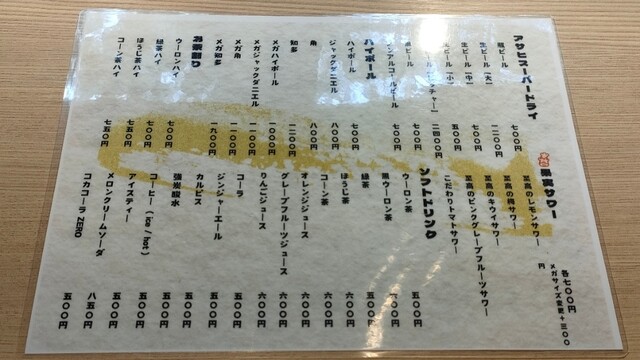 アサヒスーパードライ
瓶ビール 七〇〇円
生ビール【大】 一二〇〇円
生ビール【中】 七〇〇円
生ビール【小】 五〇〇円
二四〇〇円
ビール 七〇〇円
ノンアルコールビール 七〇〇円
ハイボール
ハイボール 七〇〇円
ジャックダニエル 八〇〇円
角 八〇〇円
知多 一二〇〇円
メガハイボール 一〇〇〇円
メガジャックダニエル 一一〇〇円
メガ角 一一〇〇円
メガ知多 一九〇〇円
お茶割り
ウーロンハイ 七〇〇円
緑茶ハイ 七〇〇円
ほうじ茶ハイ 七五〇円
コーン茶ハイ 七五〇円
至高サワー
各七〇〇円
メガサイズ変更+三〇〇円
至高のレモンサワー
至高の梅サワー
至高のキウイサワー
至高のピンクグレープフルーツサワー
こだわりトマトサワー
ソフトドリンク
ウーロン茶 五〇〇円
黒ウーロン茶 〇〇円
緑茶 五〇〇円
ほうじ茶 六〇〇円
コーン茶 六〇〇円
オレンジジュース 六〇〇円
グレープフルーツジュース 六〇〇円
りんごジュース 六〇〇円
コーラ 五〇〇円
ジンジャーエール 五〇〇円
カルピス 五〇〇円
強炭酸水 五〇〇円
コーヒー(ice / hot) 五〇〇円
アイスティー 五〇〇円
メロンクリームソーダ 八五〇円
コカコーラ ZERO 五〇〇円